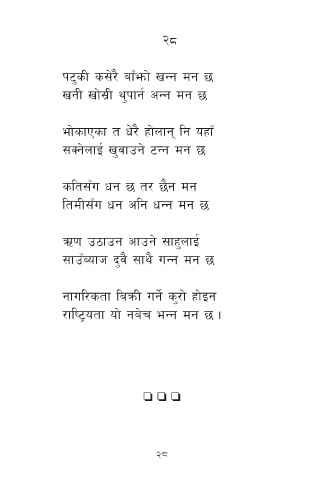 २८
पटुकी कसेरै बाँझो खन्न मन छ
खनी खोस्री थुपार्न अन्न मन छ
भोकाएका त धेरै होलान् नि यहाँ
सक्नेलाई खुवाउने टन्न मन छ
कतिसँग धन छ तर छैन मन
तिमीसँग धन अनि धन्न मन छ
ऋण उठाउन आउने साहुलाई
साउँब्याज दुवै साथै गन्न मन छ
नागरिकता बिक्री गर्ने कुरो होइन
राष्ट्रियता यो नबेच भन्न मन छ ।
❑ ❑ ❑
२८